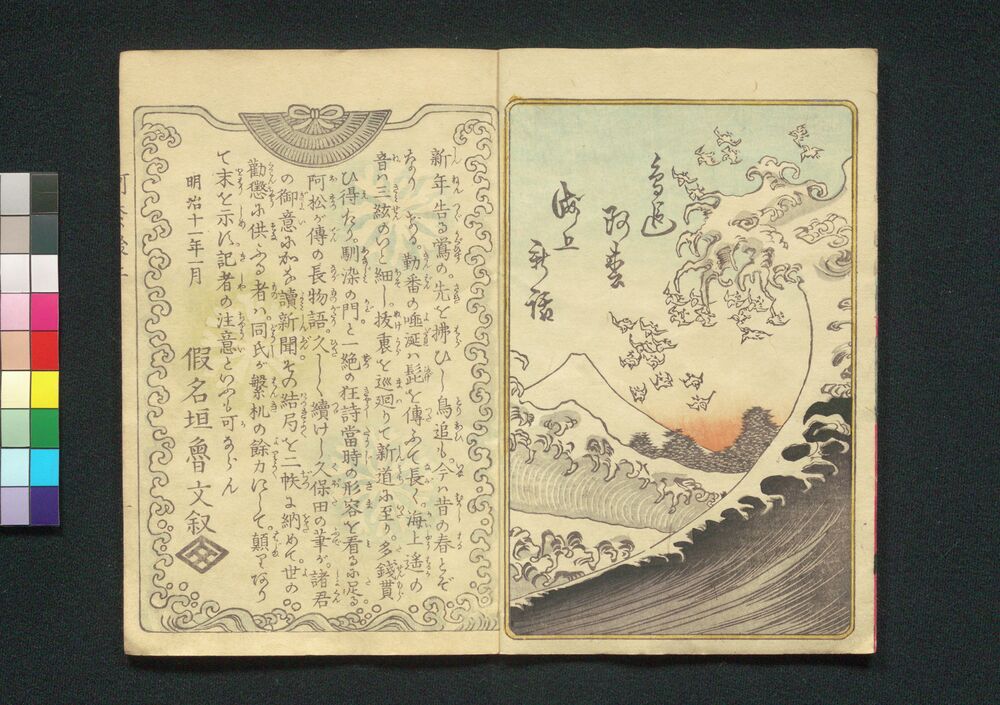 鳥追
阿松
海上
新話
新年告る鶯の。先を拂ひし鳥追も。今ハ昔の春とぞ
なりにける。勤番の唾涎ハ髭を傳ふて長く。海上遥の
音ハ三絃のいと細し。抜裏を巡廻りて新道に至り。多錢貰
ひ得たり。馴染の門と一絶の狂詩當時の形容を看るに足る
阿松が傳の長物語。久しく續けし久保田の筆が。諸君
の御意に加な讀新聞。その結局を二帙に納めて。世の
勸懲に供ふる者ハ。同氏が繁札の餘力にして。顛末あり
て末を示に。記者の注意といふも可ならん
明治十一年一月
假名垣魯文叙